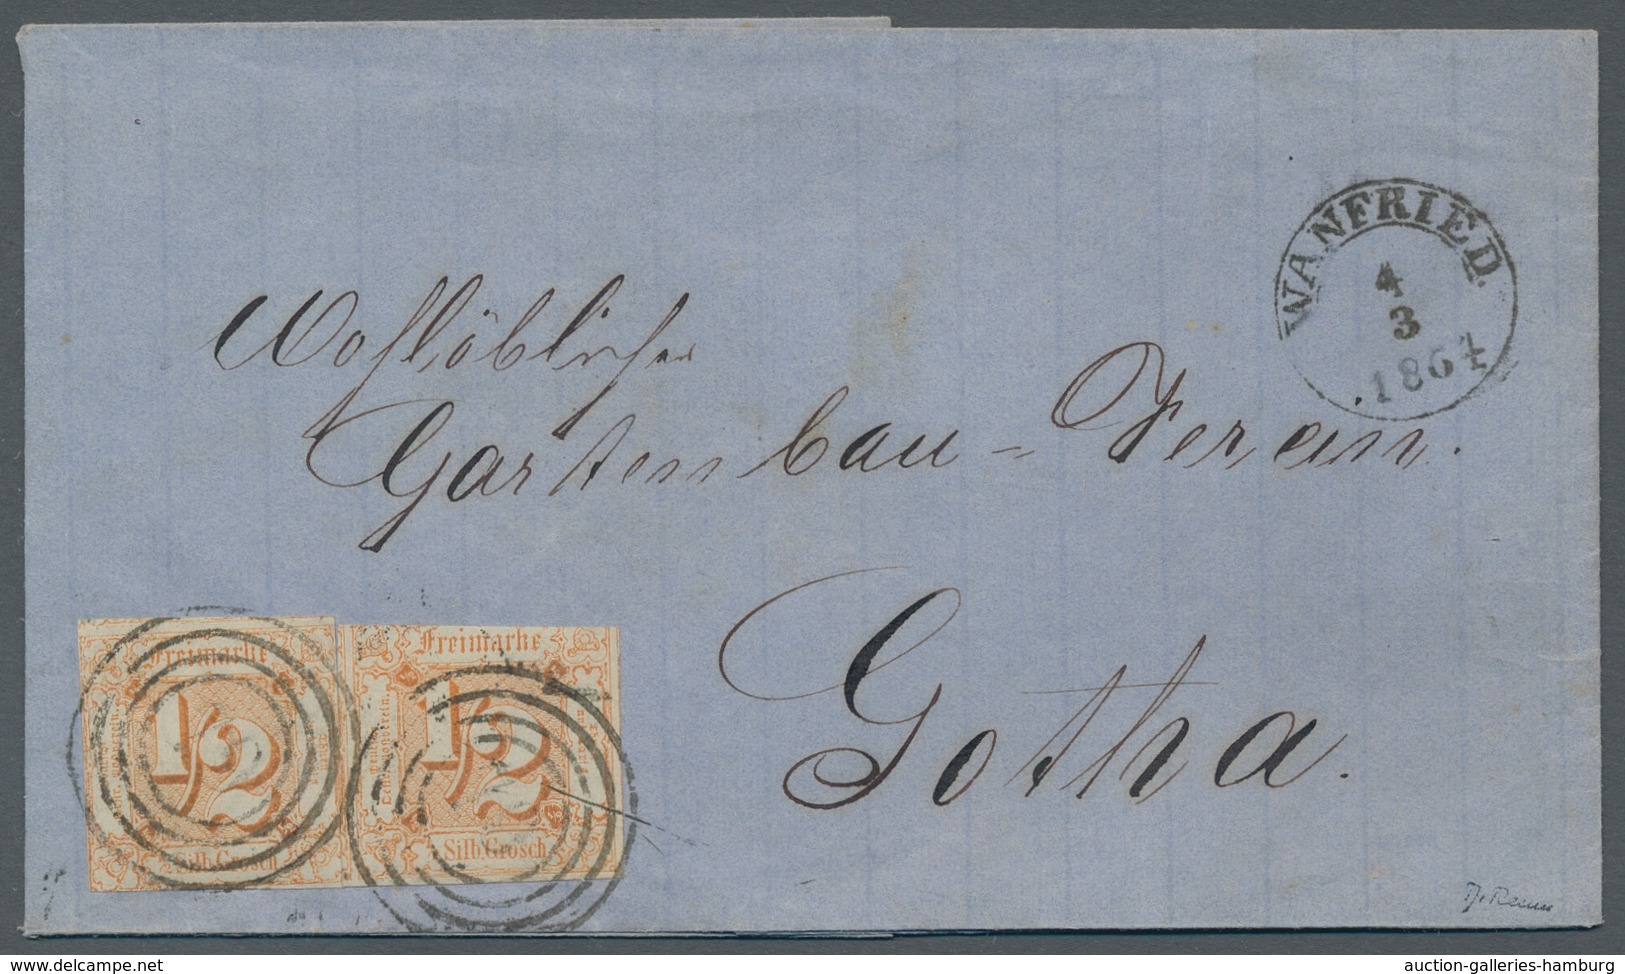 WANFRIED.
4
3
1864
Wohllöblicher
Gartenbau = Verein.
Gotha.
Freimarke
1/2
Silb. Grosch
Freimarke
1/2
Silb. Grosch
auction-galleries-hamburg
www.delcampe.net